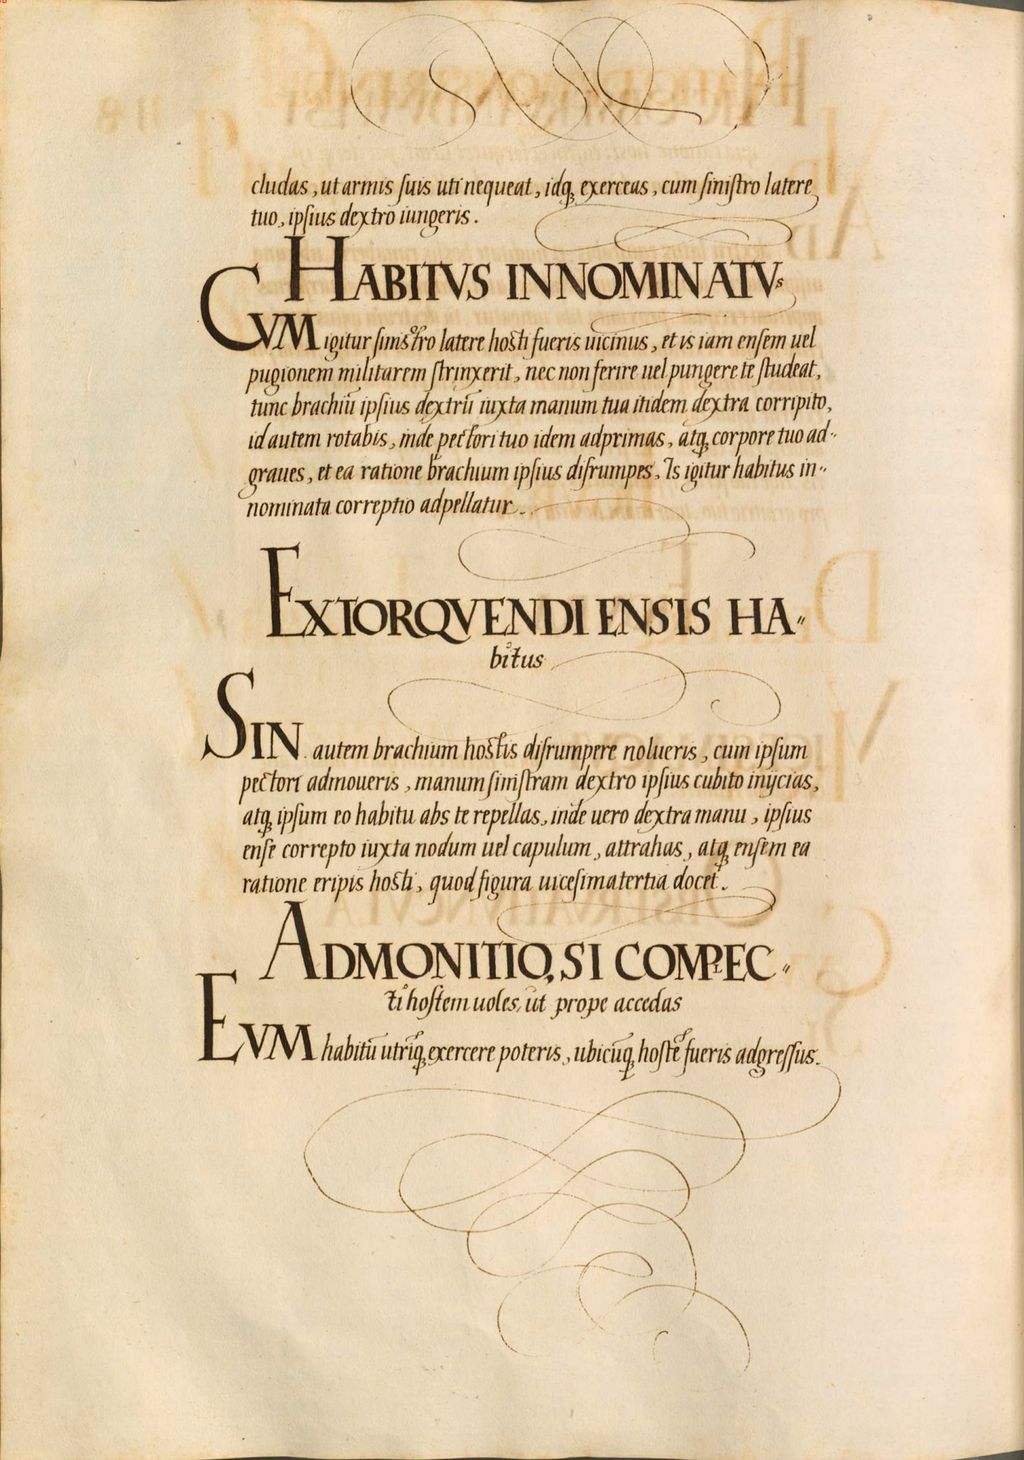 cludas, ut armis suis uti nequeat, idq, exerceas, cum sinistro latere
tuo, ipsius dextro iungeris.
HABITVS INNOMINATVs
CVM igitur sinistro latere hosti fueris uicinus, et is iam ensem uel
pugionem militarem strinxerit, nec non ferire uel pungere te studeat,
tunc brachiū ipsius dextrū iuxta manum tua itidem dextra corripito,
id autem rotabis, inde pectori tuo idem adprimas, atq, corpore tuo ad-
graues, et ea ratione brachium ipsius disrumpes, Is igitur habitus in-
nominata correptio adpellatur.
EXTORQVENDI ENSIS HA-
bitus
SIN autem brachium hostis disrumpere nolueris, cum ipsum
pectori admoueris, manum sinistram dextro ipsius cubito inijcias,
atq, ipsum eo habitu abs te repellas, inde uero dextra manu, ipsius
ense correpto iuxta nodum uel capulum, attrahas, atq, ensem ea
ratione eripis hosti, quod figura uicesima tertia docet.
ADMONITIO, SI COMPLEC-
ti hostem uoles, ut prope accedas
EVM habitū utriq, exercere poteris, ubicūq, hostē fueris adgressus.